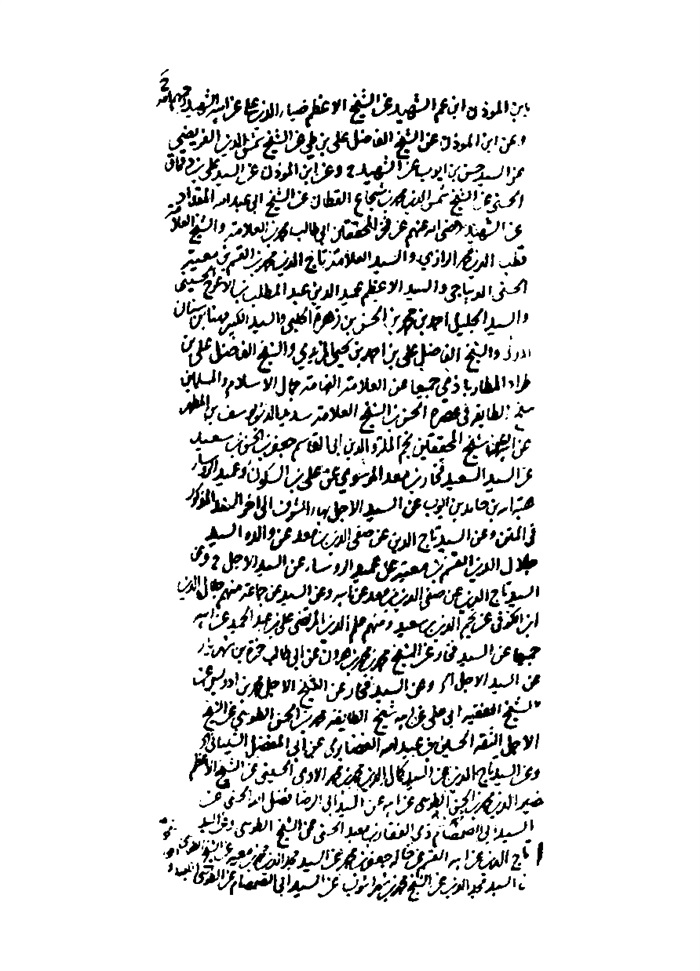 بابن المؤذن ابن عم الشهيد عن الشيخ الاعظم ضياء الدين علي عن ابيه الشهيد
وعن ابن المؤذن عن الشيخ الفاضل علي بن طي عن الشيخ شمس الدين العريضي
عن السيد حسن بن ايوب عن الشهيد ح وعن ابن المؤذن عن السيد علي بن دقماق
الحسني عن الشيخ شمس الدين محمد بن شجاع القطان عن الشيخ ابي عبد الله المقداد
عن الشهيد رضي الله عنهم عن فخر المحققين ابي طالب محمد بن العلامة والشيخ العلامة
قطب الدين محمد الرازي والسيد العلامة تاج الدين محمد بن القسم بن معية
الحسني الديباجي والسيد الاعظم عميد الدين عبد المطلب بن الاعرج الحسيني
والسيد الجليل احمد بن محمد بن الحسن بن زهرة الحلبي والسيد الكبير مهنا بن سنان
المدني والشيخ الفاضل علي بن احمد بن يحيى المزيدي والشيخ الفاضل علي بن
طراد المطارباذي جميعا عن العلامة الفهامة جمال الاسلام والمسلمين
شيخ الطايفة في عصره الحسن بن الشيخ العلامة سديد الدين يوسف بن المطهر
عن شيخ المحققين نجم الملة والدين ابي القاسم جعفر بن الحسن بن سعيد
عن السيد السعيد فخار بن معد الموسوي عن علي بن السكون وعميد الرؤساء
هبة الله بن حامد بن ايوب عن السيد الاجل بهاء الشرف الى اخر السند المذكور
في المتن وعن السيد تاج الدين عن صفي الدين بن معد عن والده السيد
جلال الدين القسم بن معية عن عميد الروساء عن السيد الاجل ح وعن
السيد تاج الدين عن صفي الدين بن معد عن ابيه وعن السيد عن جماعة منهم جلال الدين
ابن الكوفي عن نجم الدين بن سعيد ومنهم علم الدين المرتضى علي بن عبد الحميد عن ابيه
جميعا عن السيد فخار وعن الشيخ محمد بن محمد بن هرون عن ابي طالب حمزة بن شهريار
عن السيد الاجل وعن السيد فخار عن الشيخ الاجل محمد بن ادريس عن
الشيخ الفقيه ابي علي عن ابيه شيخ الطايفة محمد بن الحسن الطوسي عن الشيخ
الاجل الثقة الحسين بن عبيد الله الغضايري عن ابي المفضل الشيباني
وعن السيد تاج الدين عن السيد كمال الدين محمد بن محمد الاوي الحسيني عن الشيخ الاعظم
نصير الدين محمد بن الحسن الطوسي عن ابيه عن السيد ابي الرضا فضل الله الحسني عن
السيد ابي الصمصام ذي الفقار بن معبد الحسني عن الشيخ الطوسي وعن السيد
تاج الدين عن ابيه القسم عن خاله جعفر بن محمد عن السيد مجد الدين محمد بن معية عن الشيخ
السيد مجد الدين عن الشيخ محمد بن شهراشوب عن السيد ابي الصمصام عن الطوسي